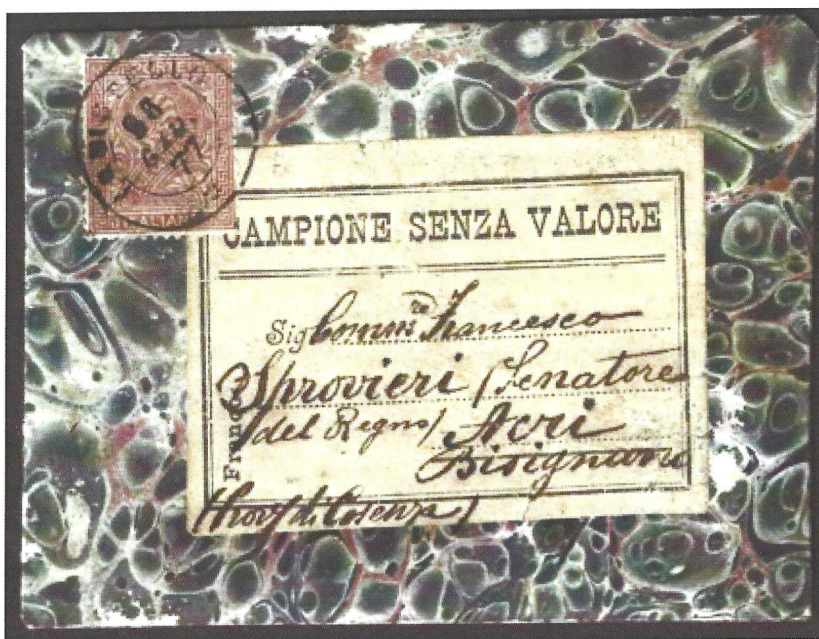 CAMPIONE SENZA VALORE
Sig Comm.re Francesco
Sprovieri (Senatore
del Regno) Acri
Bisignano
(Prov. di Cosenza)